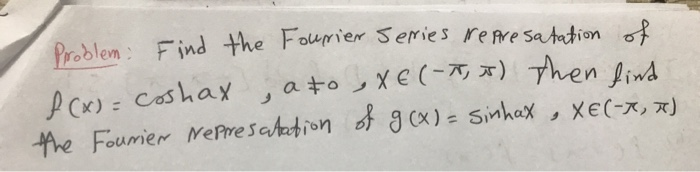 Problem: Find the Fourier Series represatation of
f(x) = coshax, a≠0, x∈(-π, π) Then find
the Fourier represatation of g(x) = sinhax, x∈(-π, π)